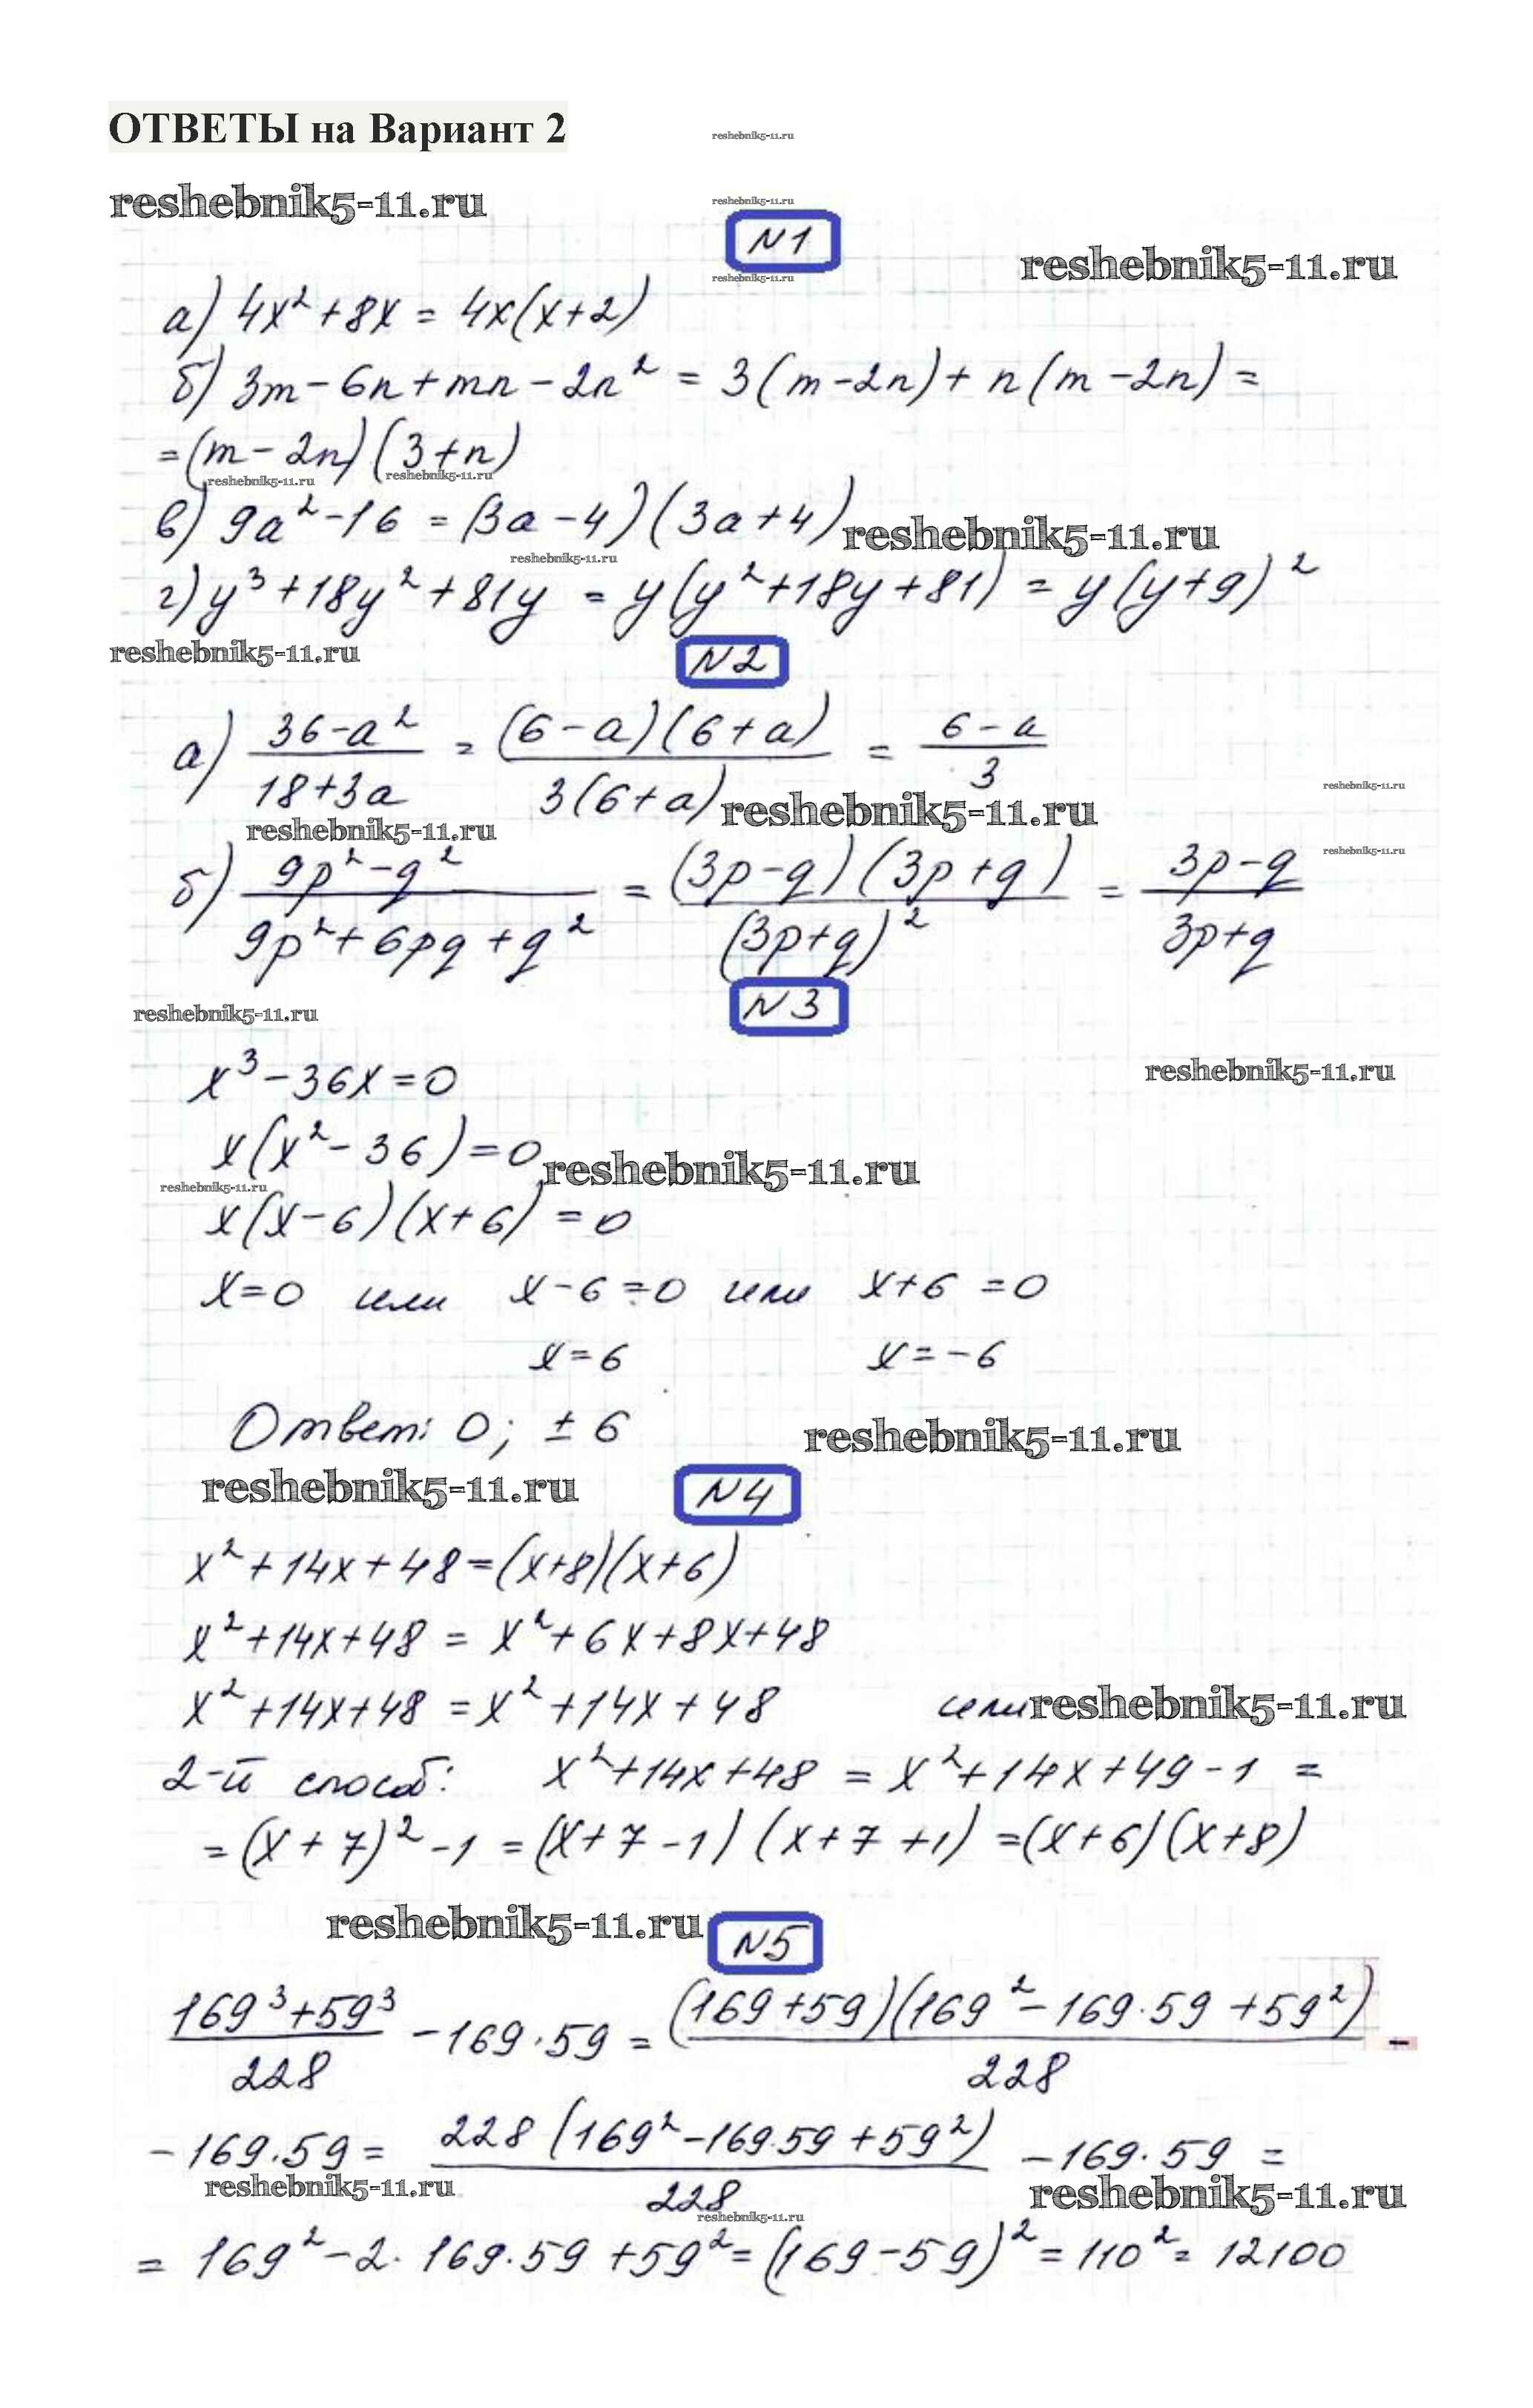 ОТВЕТЫ на Вариант 2
reshebnik5-11.ru
reshebnik5-11.ru
reshebnik5-11.ru
N1
reshebnik5-11.ru
reshebnik5-11.ru
а) 4x² + 8x = 4x(x+2)
б) 3m - 6n + mn - 2n² = 3(m-2n) + n(m-2n) =
= (m-2n)(3+n)
reshebnik5-11.ru reshebnik5-11.ru
в) 9a² - 16 = (3a-4)(3a+4)
reshebnik5-11.ru
reshebnik5-11.ru
г) y³ + 18y² + 81y = y(y² + 18y + 81) = y(y+9)²
reshebnik5-11.ru
N2
а) (36-a²)/(18+3a) = ((6-a)(6+a))/(3(6+a)) = (6-a)/3
reshebnik5-11.ru
reshebnik5-11.ru
reshebnik5-11.ru
reshebnik5-11.ru
б) (9p²-q²)/(9p²+6pq+q²) = ((3p-q)(3p+q))/((3p+q)²) = (3p-q)/(3p+q)
N3
reshebnik5-11.ru
x³ - 36x = 0
reshebnik5-11.ru
x(x² - 36) = 0
reshebnik5-11.ru
reshebnik5-11.ru
x(x-6)(x+6) = 0
x=0 или x-6=0 или x+6=0
x=6 x=-6
Ответ: 0; ±6
reshebnik5-11.ru
reshebnik5-11.ru
N4
x² + 14x + 48 = (x+8)(x+6)
x² + 14x + 48 = x² + 6x + 8x + 48
x² + 14x + 48 = x² + 14x + 48 или
reshebnik5-11.ru
2-й способ: x² + 14x + 48 = x² + 14x + 49 - 1 =
= (x+7)² - 1 = (x+7-1)(x+7+1) = (x+6)(x+8)
reshebnik5-11.ru
N5
(169³+59³)/228 - 169·59 = ((169+59)(169²-169·59+59²))/228 -
- 169·59 = (228(169²-169·59+59²))/228 - 169·59 =
reshebnik5-11.ru
reshebnik5-11.ru
reshebnik5-11.ru
= 169² - 2·169·59 + 59² = (169-59)² = 110² = 12100